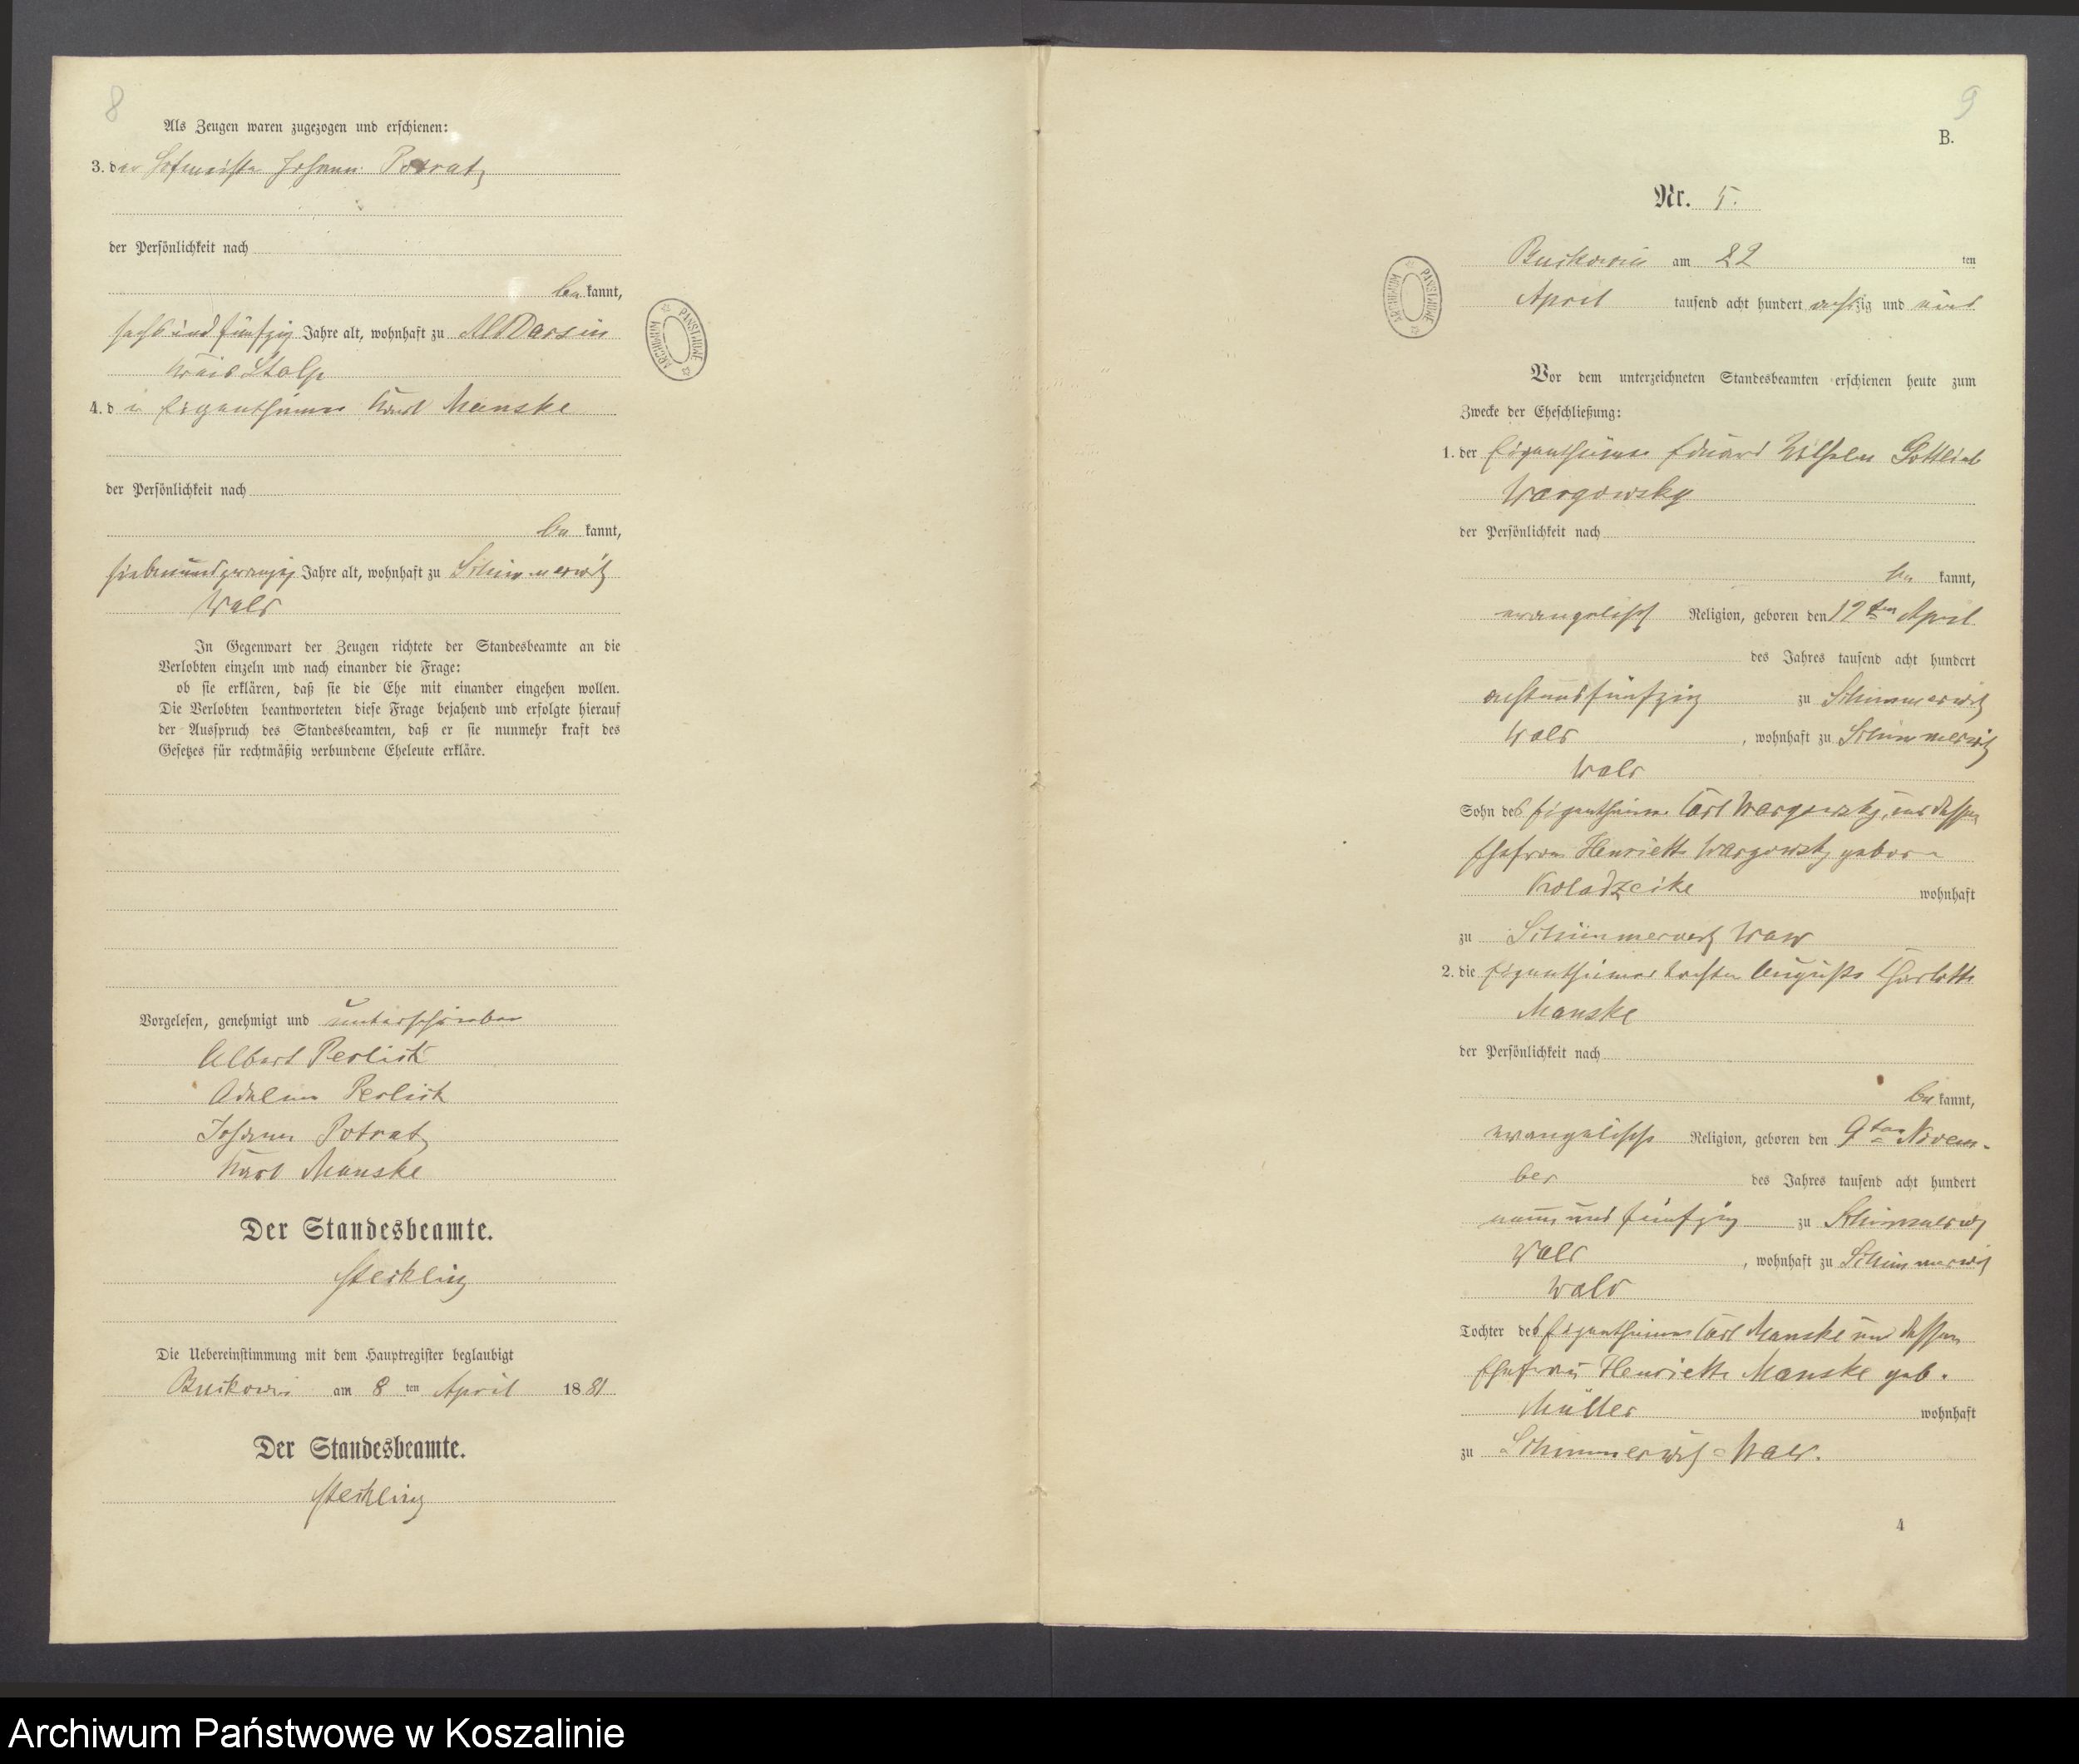 8
Als Zeugen waren zugezogen und erschienen:
3. der Hofmeister Johann Potratz
der Persönlichkeit nach
be kannt,
sechs und fünfzig Jahre alt, wohnhaft zu Alt Darsin
Kreis Stolp
4. d Eigenthümer Karl Manske
der Persönlichkeit nach
be kannt,
siebenundzwanzig Jahre alt, wohnhaft zu Schimmerwitz
Wald
In Gegenwart der Zeugen richtete der Standesbeamte an die
Verlobten einzeln und nach einander die Frage:
ob sie erklären, daß sie die Ehe mit einander eingehen wollen.
Die Verlobten beantworteten diese Frage bejahend und erfolgte hierauf
der Ausspruch des Standesbeamten, daß er sie nunmehr kraft des
Gesetzes für rechtmäßig verbundene Eheleute erkläre.
Vorgelesen, genehmigt und unterschrieben
Albert Perlick
Perlick
Johann Potratz
Karl Manske
Der Standesbeamte.
Die Uebereinstimmung mit dem Hauptregister beglaubigt
am 8 ten April 1881
Der Standesbeamte.
ARCHIWUM PAŃSTWOWE
9
B.
Nr. 5.
am 22 ten
April tausend acht hundert achtzig und eins
Vor dem unterzeichneten Standesbeamten erschienen heute zum
Zwecke der Eheschließung:
1. der Eigenthümer Eduard Wilhelm Gottlieb
Wargowsky
der Persönlichkeit nach
be kannt,
evangelisch Religion, geboren den 12ten April
des Jahres tausend acht hundert
achtundfünfzig zu Schimmerwitz
Wald, wohnhaft zu Schimmerwitz
Wald
Sohn des Eigenthümer Carl Wargowsky und dessen
Ehefrau Henriette Wargowsky gebor
wohnhaft
zu Schimmerwitz Wald
2. die Eigenthümertochter Auguste Charlotte
Manske
der Persönlichkeit nach
be kannt,
evangelische Religion, geboren den 9ten Novem-
ber des Jahres tausend acht hundert
neun und fünfzig zu Schimmerwitz
Wald, wohnhaft zu Schimmerwitz
Wald
Tochter des Eigenthümer Carl Manske und dessen
Ehefrau Henriette Manske geb.
Müller wohnhaft
zu Schimmerwitz-Wald.
4
ARCHIWUM PAŃSTWOWE
Archiwum Państwowe w Koszalinie